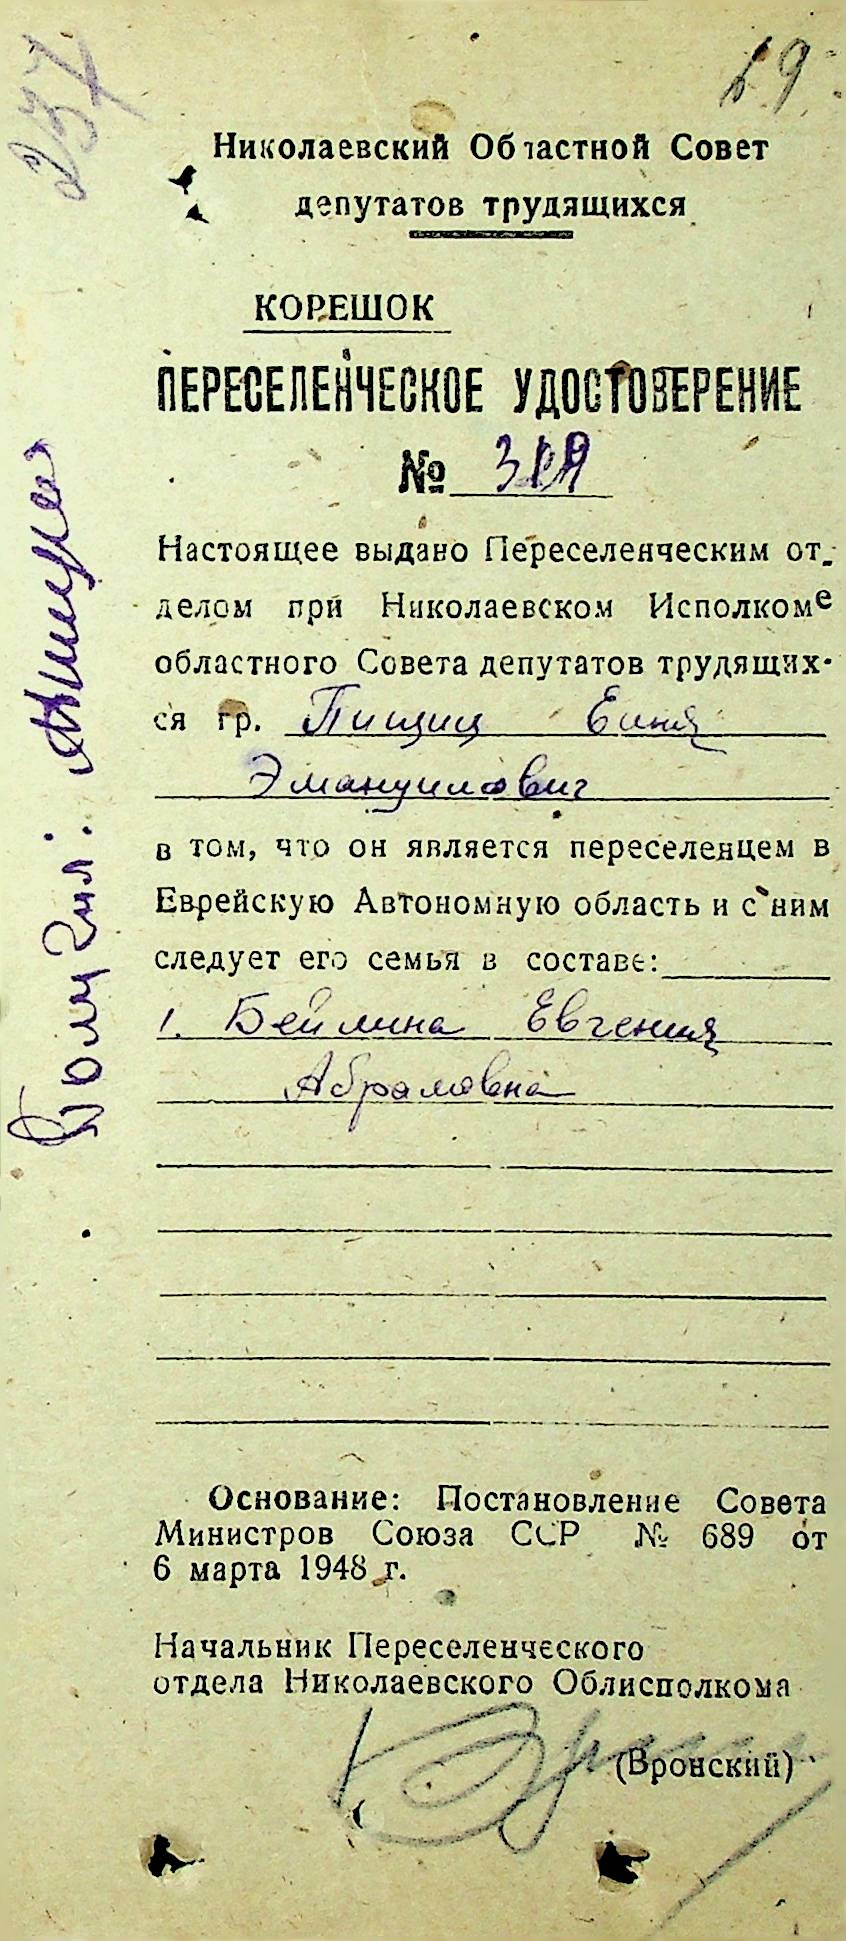 237
29
Николаевский Областной Совет
депутатов трудящихся
КОРЕШОК
ПЕРЕСЕЛЕНЧЕСКОЕ УДОСТОВЕРЕНИЕ
№
Настоящее выдано Переселенческим от-
делом при Николаевском Исполкоме
областного Совета депутатов трудящих-
ся гр. Пищиц
Эмануилович
в том, что он является переселенцем в
Еврейскую Автономную область и с ним
следует его семья в составе:
1. Бейлина Евгения
Абрамовна
Основание: Постановление Совета
Министров Союза ССР № 689 от
6 марта 1948 г.
Начальник Переселенческого
отдела Николаевского Облисполкома
(Вронский)
Получил: